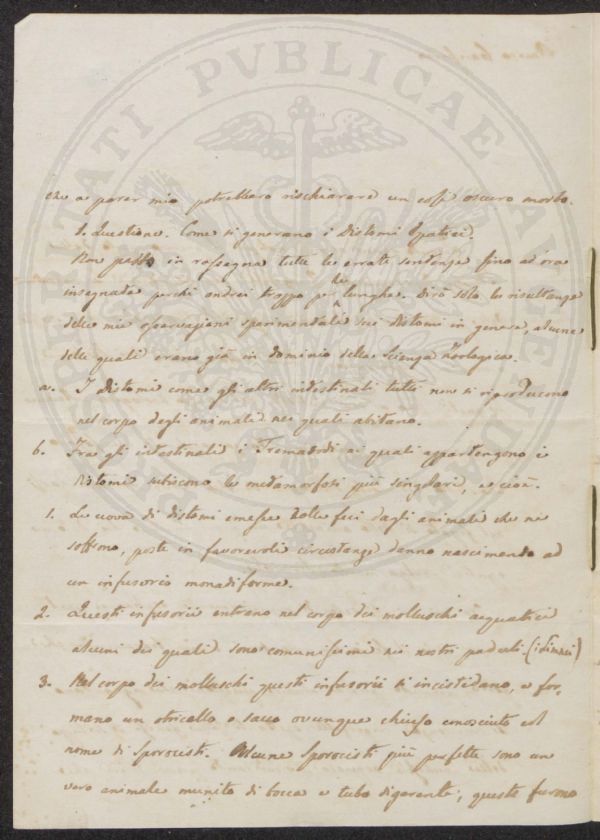 PROSPERITATI PVBLICAE AVGENDAE
che a parer mio potrebbero rischiarare un così oscuro morbo.
1. Questione. Come si generano i Distomi Epatici.
Non passo in rassegna tutte le errate sentenze fino ad ora
insegnate perchè andrei troppo per le lunghe. Dirò solo le risultanze
delle mie osservazioni sperimentali sui Distomi in genere, alcune
delle quali erano già in dominio della Scienza Zoologica.
a. I distomi come gli altri intestinali tutti non si riproducono
nel corpo degli animali nei quali abitano.
b. Fra gli intestinali i Trematodi ai quali appartengono i
Distomi subiscono le metamorfosi più singolari, e cioè.
1. Le uova di distomi emesse dalle feci dagli animali che ne
soffrono, poste in favorevoli circostanze danno nascimento ad
un infusorio monadiforme.
2. Questi infusorii entrano nel corpo dei molluschi acquatici
alcuni dei quali sono comunissimi nei nostri paduli. (i limnei)
3. Nel corpo dei molluschi questi infusorii si incistidano, e for,
mano un otricello o sacco ovunque chiuso conosciuto col
nome di Sporocisti. Alcune Sporocisti più perfette sono un
vero animale munito di bocca e tubo digerente; queste furono